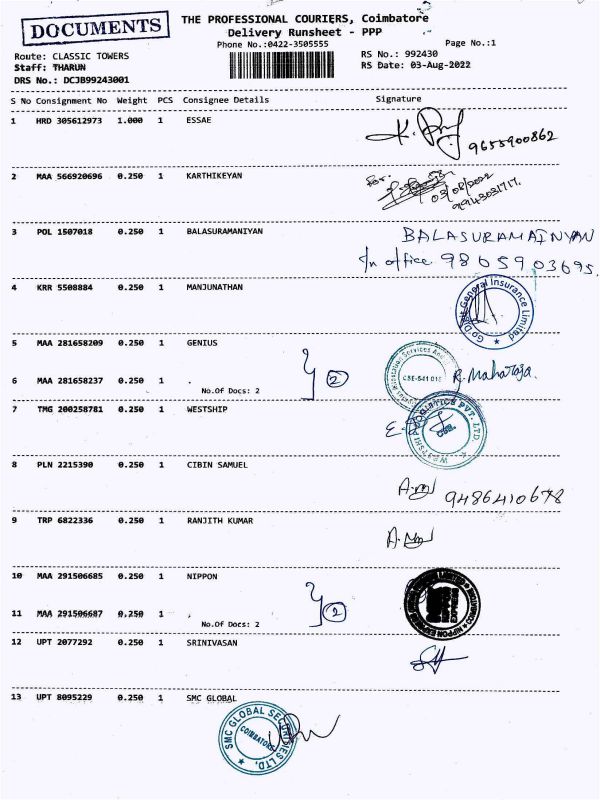 DOCUMENTS
THE PROFESSIONAL COURIERS, Coimbatore
Delivery Runsheet - PPP
Phone No.:0422-3505555
Page No.:1
Route: CLASSIC TOWERS
Staff: THARUN
DRS No.: DCJB99243001
RS No.: 992430
RS Date: 03-Aug-2022
S No Consignment No Weight PCS Consignee Details Signature
1 HRD 305612973 1.000 1 ESSAE
9655900862
2 MAA 566920696 0.250 1 KARTHIKEYAN
for.
03/08/2022
9943031717.
3 POL 1507018 0.250 1 BALASURAMANIYAN
BALASURAMAINYAN
In office 9865903695.
4 KRR 5508884 0.250 1 MANJUNATHAN
Go Digit General Insurance Limited
5 MAA 281658209 0.250 1 GENIUS
6 MAA 281658237 0.250 1 .
No.Of Docs: 2
2
CBE-641 018
R. Maharaja.
7 TMG 200258781 0.250 1 WESTSHIP
8 PLN 2215390 0.250 1 CIBIN SAMUEL
9486410678
9 TRP 6822336 0.250 1 RANJITH KUMAR
10 MAA 291506685 0.250 1 NIPPON
11 MAA 291506687 0.250 1 .
No.Of Docs: 2
2
12 UPT 2077292 0.250 1 SRINIVASAN
13 UPT 8095229 0.250 1 SMC GLOBAL
SMC GLOBAL SECURITIES LTD.
COIMBATORE